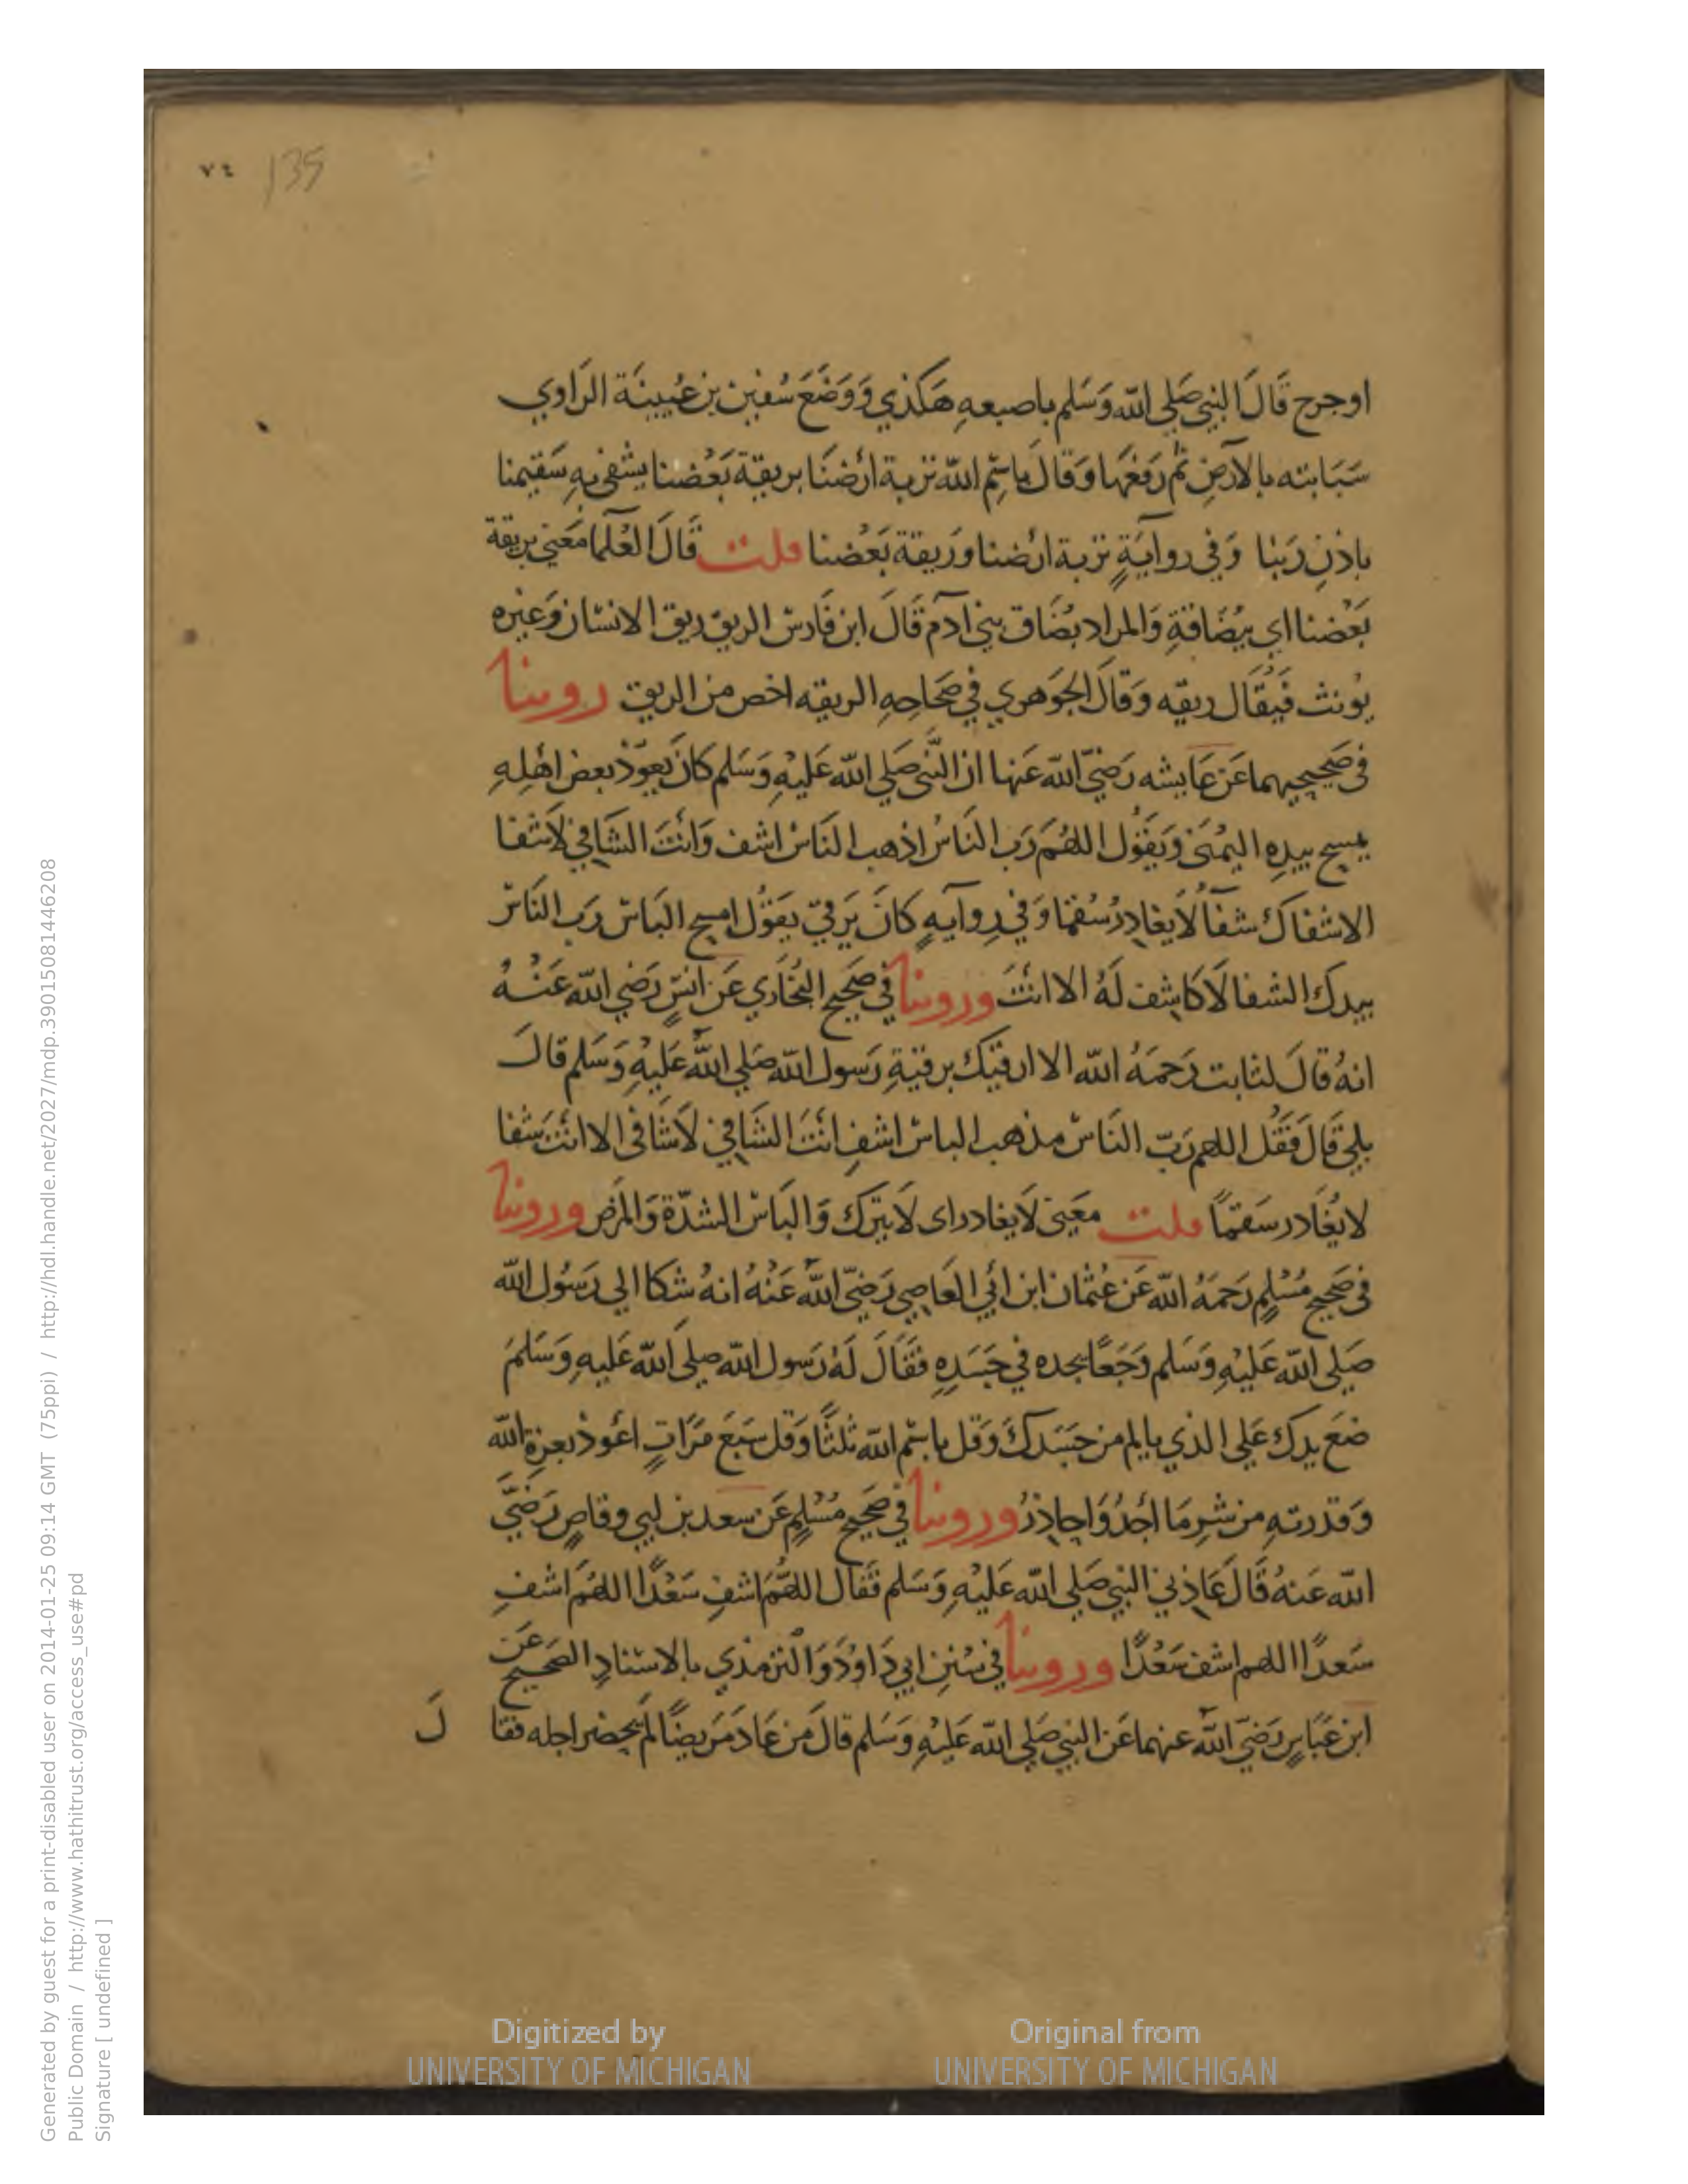 ٧٤ 135
اوجرح قَالَ النبي صَلي الله وَسَلم باصبعهِ هَكذي وَوَضَعَ سُفين بن عُيينَة الرَاوي
سَبَابته بالارضِ ثم رَفعَها وَقالَ باسْمِ الله تربة ارْضنَا بريقة بَعْضنا يشفى بهِ سَقيمنا
باذنِ رَبنا وَفي روايَةٍ تربة ارْضنا وَريقة بَعْضنا قلت قَالَ العُلما مَعني بريقة
بَعْضنا اي ببُصَاقةِ وَالمراد بصَاق بني ادَم قَالَ ابن فَارس الريق ريق الانسَان وَغيره
يُونث فَيُقَال ريقه وَقَالَ الجوَهري في صحَاحِهِ الريقه اخص من الريق روينا
في صَحيحيهما عَن عَايشه رَضيَ الله عَنها ان النَّبي صَلي الله عَليْهِ وَسَلم كانَ يُعوّذ بعض اهْلِهِ
يمسح بيدِهِ اليُمنَى وَيَقوُل اللهُمَ رَب النَاسُ اذهب النَاسْ اشف وَانتَ الشَافي لَاشفا
الاشفاك شفاً لَا يغادِرُ سُقما وَفي رِوايهٍ كانَ يَرقي يقوُل امسح البَاسْ رَب النَاسْ
بيدك الشفا لَا كاشِف لَهُ الا انتَ وروينا في صَحيح البُخَاري عَن انسٍ رَضي الله عَنْهُ
انهُ قالَ لثابت رَحمَهُ الله الا ارقيك برقيةِ رَسول الله صَلي الله عَليْهِ وَسَلم قالَ
بلي قَالَ فَقُل اللهم رَبّ النَاسْ مذهب الباسْ اشفِ انْتَ الشَافي لَا شَافي الا انْتَ شفا
لا يُغَادر سَقمًا قلت مَعَنى لَا يغادر اى لَا يَترك وَالبَاسْ الشدّة وَالمَرض وروينا
في صَحيح مُسْلِمٍ رَحَمَهُ الله عَن عُثمَان ابن ابي العَاصِي رَضيّ الله عَنْهُ انهُ شكا الي رَسُول الله
صَلى الله عَليْهِ وَسَلم وَجَعًا يجده في جَسَدِهِ فقَالَ لَهُ رَسول الله صلى الله عَليهِ وَسَلمَ
ضَع يدك عَلي الذي يا لم من جسَدكَ وَقل باسْم الله ثلثًا وَقل سَبَعَ مَرَاتٍ اعُوذ بعزةِ الله
وَقدرتهِ من شرِ مَا اجدُ وَاحاذرُ وروينا في صَحيح مُسْلِمٍ عَن سعد بن ابي وقاصٍ رَضيَ
الله عَنهُ قَالَ عَاذني النبي صَلي الله عَليْهِ وَسَلم فقالَ اللهُمَ اشفِ سَعْدًا اللهُمَ اشفِ
سَعدًا اللهم اشفِ سَعْدًا وروينا في سُنن ابي دَاودَ وَالترمذي بالاسنادِ الصَحيح عَن
ابن عَبَاسٍ رَضيَ الله عنهما عَن النبي صَلي الله عَليْهِ وَسَلم قالَ مَن عَادَ مَريضًا لَم يحضر اجله فقا لَ
Digitized by UNIVERSITY OF MICHIGAN
Original from UNIVERSITY OF MICHIGAN
Generated by guest for a print-disabled user on 2014-01-25 09:14 GMT (75ppi) / http://hdl.handle.net/2027/mdp.39015081446208
Public Domain / http://www.hathitrust.org/access_use#pd
Signature [ undefined ]